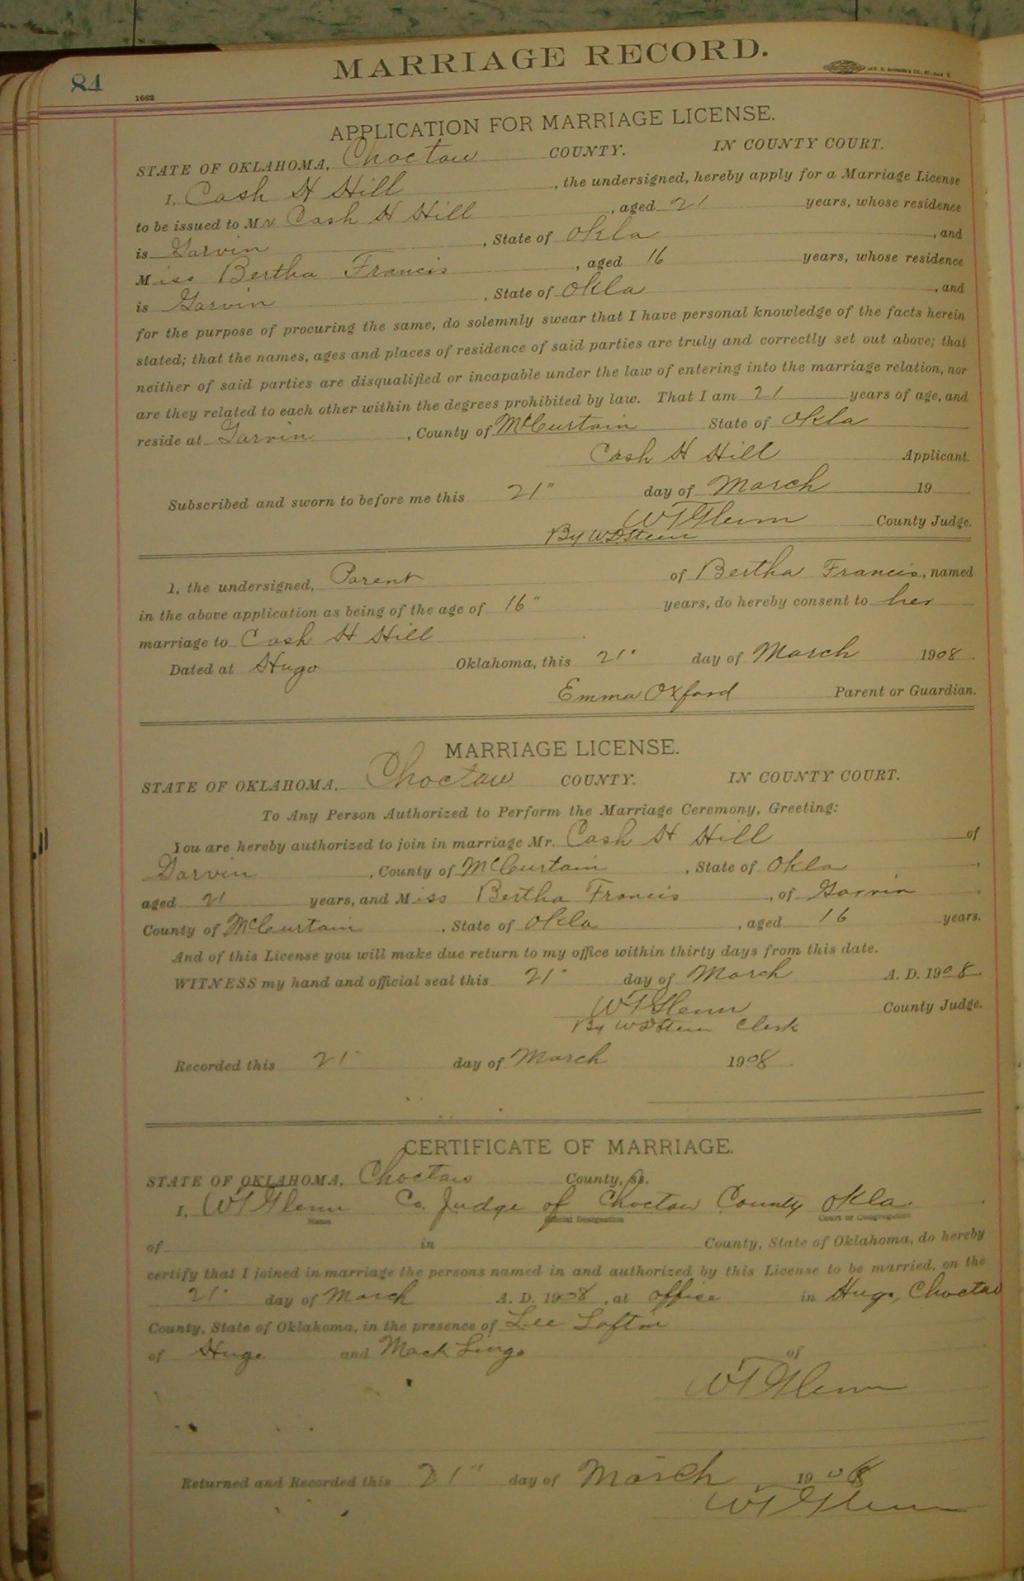 84
MARRIAGE RECORD.
1662
APPLICATION FOR MARRIAGE LICENSE.
STATE OF OKLAHOMA, Choctaw COUNTY. IN COUNTY COURT.
I, Cash H Hill, the undersigned, hereby apply for a Marriage License
to be issued to Mr Cash H Hill, aged 21 years, whose residence
is Garvin, State of Okla, and
Miss Bertha Francis, aged 16 years, whose residence
is Garvin, State of Okla, and
for the purpose of procuring the same, do solemnly swear that I have personal knowledge of the facts herein
stated; that the names, ages and places of residence of said parties are truly and correctly set out above; that
neither of said parties are disqualified or incapable under the law of entering into the marriage relation, nor
are they related to each other within the degrees prohibited by law. That I am 21 years of age, and
reside at Garvin, County of McCurtain State of Okla
Cash H Hill Applicant.
Subscribed and sworn to before me this 21" day of March 19
W T Glenn County Judge.
By
I, the undersigned, Parent of Bertha Francis, named
in the above application as being of the age of 16" years, do hereby consent to her
marriage to Cash H Hill
Dated at Hugo Oklahoma, this 21" day of March 1908
Emma Oxford Parent or Guardian.
MARRIAGE LICENSE.
STATE OF OKLAHOMA, Choctaw COUNTY. IN COUNTY COURT.
To Any Person Authorized to Perform the Marriage Ceremony, Greeting:
You are hereby authorized to join in marriage Mr. Cash H Hill of
Garvin, County of McCurtain, State of Okla,
aged 21 years, and Miss Bertha Francis, of Garvin
County of McCurtain, State of Okla, aged 16 years.
And of this License you will make due return to my office within thirty days from this date.
WITNESS my hand and official seal this 21" day of March A. D. 1908
W T Glenn County Judge.
By Clerk
Recorded this 21" day of March 1908
CERTIFICATE OF MARRIAGE.
STATE OF OKLAHOMA, Choctaw County, ss.
I, W T Glenn Co. Judge of Choctaw County Okla.
Name Official Designation Court or Congregation
of in County, State of Oklahoma, do hereby
certify that I joined in marriage the persons named in and authorized by this License to be married, on the
21" day of March A. D. 1908, at office in Hugo, Choctaw
County, State of Oklahoma, in the presence of Lee Loftin
of Hugo and Mack Lingo of
W T Glenn
Returned and Recorded this 21" day of March 1908
W T Glenn